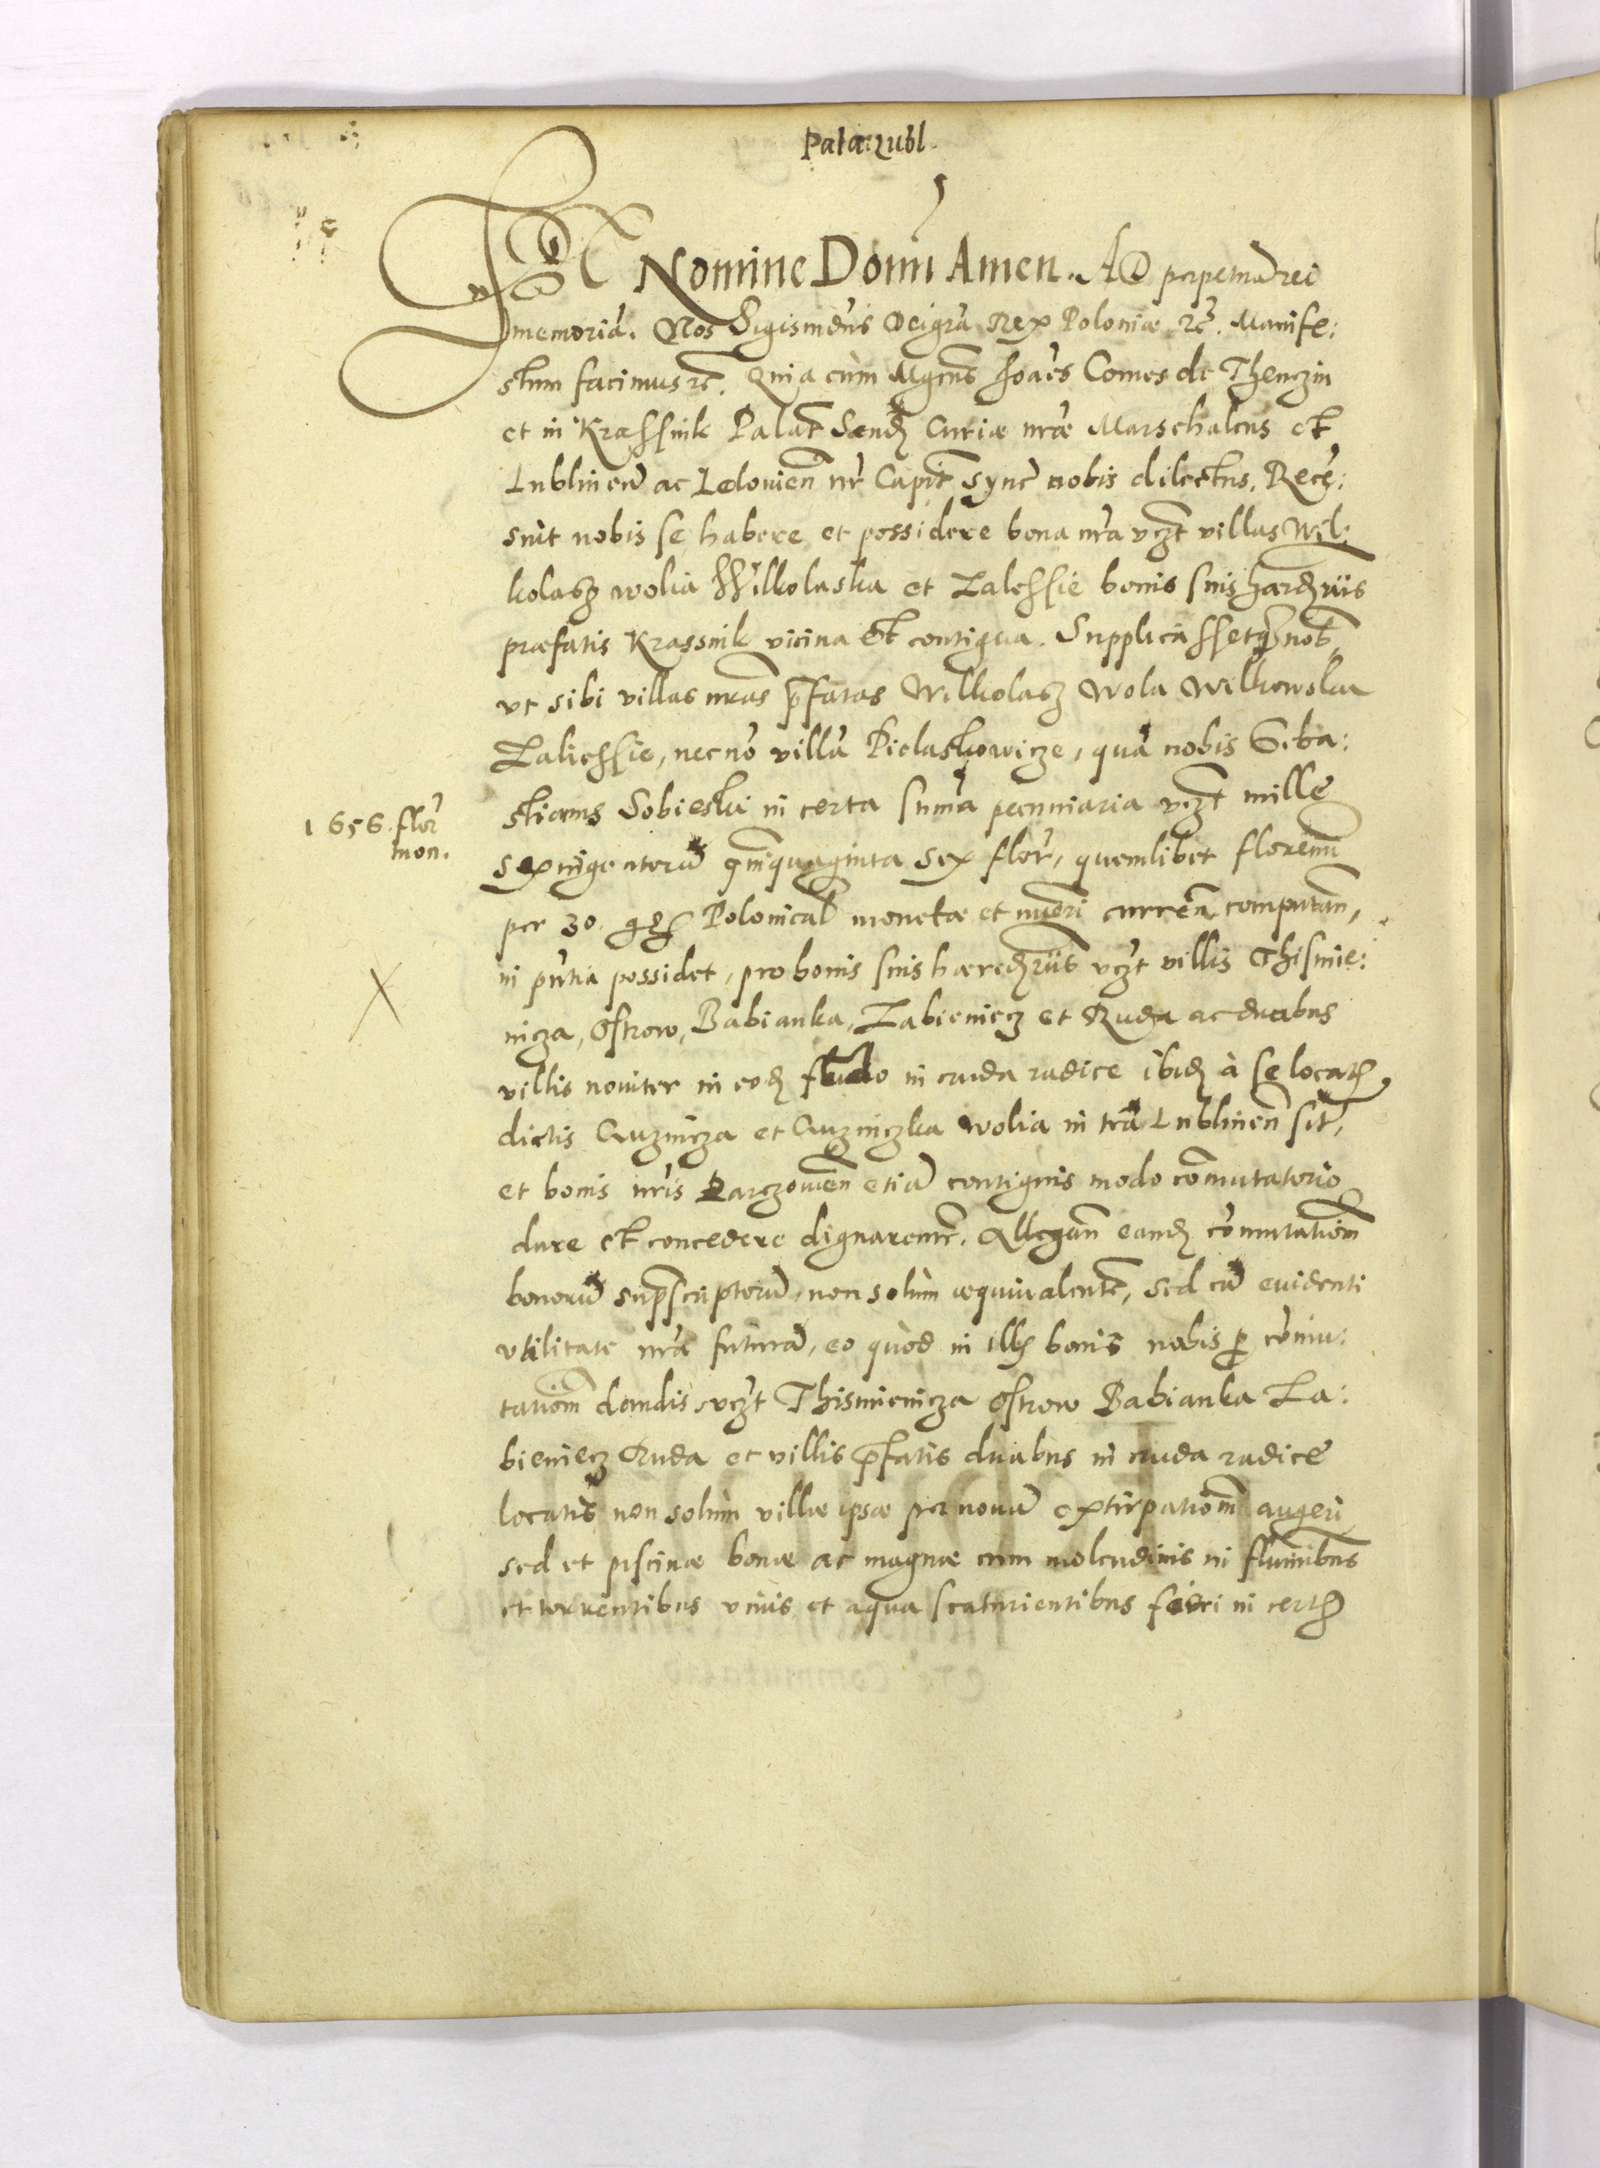 Pala: Lubl.
IN Nomine Domi Amen. AD perpetuā rei
memoriā. Nos Sigismdūs Dei gra Rex Poloniæ rc. Manife:
stum facimus rc. Quia cùm Mgcus Joāes Comes de Thenczin
et in Krassnik Palat Send Curiæ nræ Marschalcus et
Lublinen ac Ledouien nr Capit sync nobis dilectus, Rece:
suit nobis se habere et possidere bona nra vczt villas Wil:
kolasz wolia Wilkolaska et Zalessie bonis suis hæredriis
præfatis Krassnik vicina et contigua. Supplicassetq nob
vt sibi villas nras pfatas Wilkolasz Wola Wilkowska
Zaliessie, necno villā Pielaskowicze, quā nobis Seba:
stianus Sobieski in certa suma pecuniaria vczt mille
1656. flor
mon.
sexcingentorū quinquaginta sex flor, quemlibet florenū
per 30. gr Polonical monetæ et nueri curren computan,
in pntia possidet, pro bonis suis hæredriis vczt villis Thismie:
nicza, Ostrow, Babianka, Zabieniecz et Ruda ac duabus
villis nouiter in eod fundo in cruda radice ibid à se locatis
dictis Guznicza et Guzniczka wolia in tra Lublinen sit,
et bonis nris Parczowien etiā contiguis modo comutatorio
dare et concedere dignaremr. Allegan eand comutationem
bonorū suprscriptorū, non solùm æquiualente, sed cū euidenti
vtilitate nra futurā, eo quòd in illis bonis nobis p comu:
tationem dandis vczt Thismienicza Ostrow Babianka Za:
bieniecz Ruda et villis pfatis duabus in cruda radice
locatis non solùm villæ ipsæ per nouā extirpationem augeri
sed et piscinæ bonæ ac magnæ cum molendinis in fluminibus
et torrentibus viuis et aqua scaturientibus fieri in certis